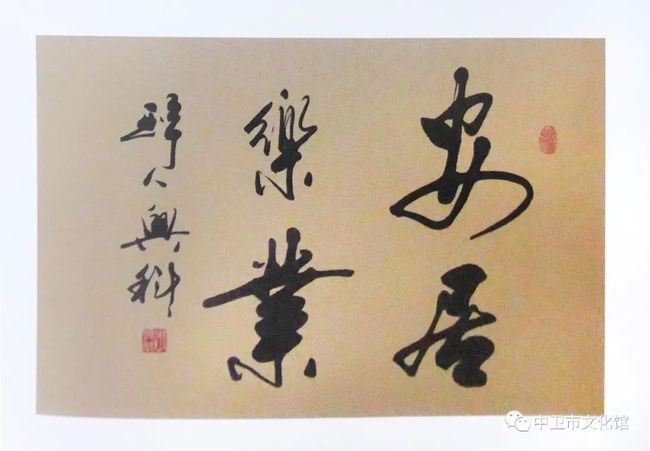 安居
樂業
醉人興科
中卫市文化馆